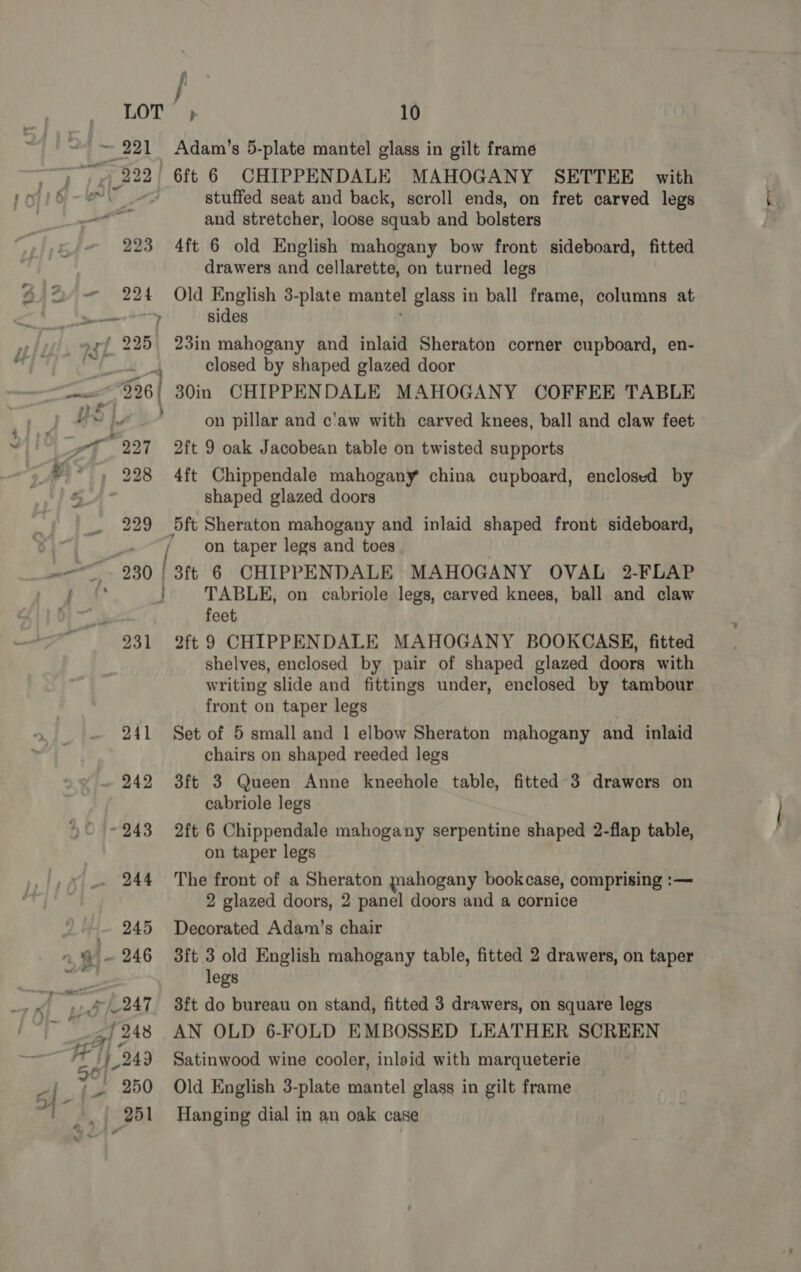 LOT 10
221 Adam's 5-plate mantel glass in gilt frame
222 6ft 6 CHIPPENDALE MAHOGANY SETTEE with
stuffed seat and back, scroll ends, on fret carved legs
and stretcher, loose squab and bolsters
223 4ft 6 old English mahogany bow front sideboard, fitted
drawers and cellarette, on turned legs
224 Old English 3-plate mantel glass in ball frame, columns at
sides
225 23in mahogany and inlaid Sheraton corner cupboard, en-
closed by shaped glazed door
226 30in CHIPPENDALE MAHOGANY COFFEE TABLE
on pillar and c'aw with carved knees, ball and claw feet
227 2ft 9 oak Jacobean table on twisted supports
228 4ft Chippendale mahogany china cupboard, enclosed by
shaped glazed doors
229 5ft Sheraton mahogany and inlaid shaped front sideboard,
on taper legs and toes
230 3ft 6 CHIPPENDALE MAHOGANY OVAL 2-FLAP
TABLE, on cabriole legs, carved knees, ball and claw
feet
231 2ft 9 CHIPPENDALE MAHOGANY BOOKCASE, fitted
shelves, enclosed by pair of shaped glazed doors with
writing slide and fittings under, enclosed by tambour
front on taper legs
241 Set of 5 small and 1 elbow Sheraton mahogany and inlaid
chairs on shaped reeded legs
242 3ft 3 Queen Anne kneehole table, fitted 3 drawers on
cabriole legs
243 2ft 6 Chippendale mahogany serpentine shaped 2-flap table,
on taper legs
244 The front of a Sheraton mahogany bookcase, comprising :—
2 glazed doors, 2 panel doors and a cornice
245 Decorated Adam's chair
246 3ft 3 old English mahogany table, fitted 2 drawers, on taper
legs
247 3ft do bureau on stand, fitted 3 drawers, on square legs
248 AN OLD 6-FOLD EMBOSSED LEATHER SCREEN
249 Satinwood wine cooler, inlaid with marqueterie
250 Old English 3-plate mantel glass in gilt frame
251 Hanging dial in an oak case